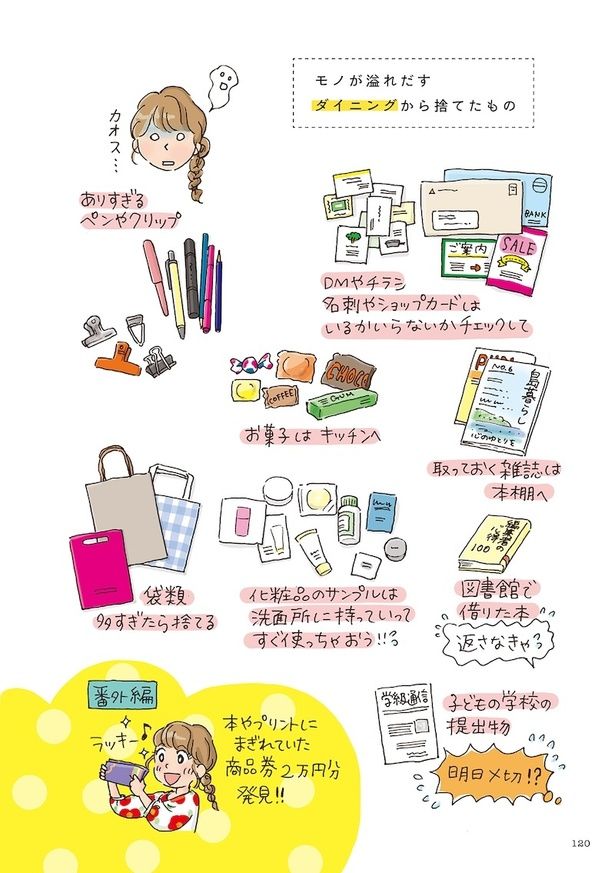 モノが溢れだす
ダイニングから捨てたもの
カオス…
ありすぎる
ペンやクリップ
BANK
ご案内
SALE
DMやチラシ
名刺やショップカードは
いるかいらないかチェックして
CHOCO
COFFEE
GUM
お菓子は キッチンへ
NO.6
島暮らし
心のゆとりを
取っておく雑誌は
本棚へ
袋類
多すぎたら捨てる
化粧品のサンプルは
洗面所に持っていって
すぐ使っちゃおう!!
編集者の
心得
100
図書館で
借りた本
返さなきゃっ
番外編
ラッキー♪
本やプリントに
まぎれていた
商品券2万円分
発見!!
学級通信
子どもの学校の
提出物
明日〆切!?
120